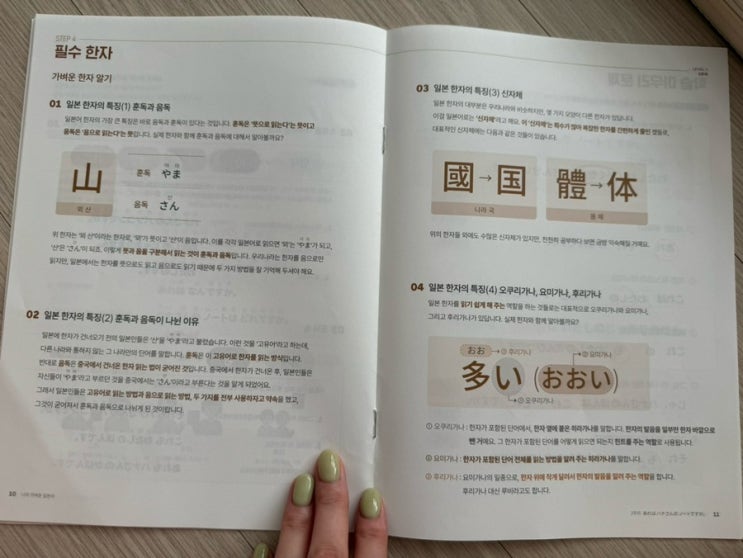 STEP 4
필수 한자
가벼운 한자 알기
01 일본 한자의 특징(1) 훈독과 음독
일본어 한자의 가장 큰 특징은 바로 음독과 훈독이 있다는 것입니다. 훈독은 '뜻으로 읽는다'는 뜻이고
음독은 '음으로 읽는다'는 뜻입니다. 실제 한자와 함께 훈독과 음독에 대해서 알아볼까요?
山
뫼 산
훈독 やま
음독 さん
위 한자는 '뫼 산'이라는 한자로, '뫼'가 뜻이고 '산'이 음입니다. 이를 각각 일본어로 읽으면 '뫼'는 'やま'가 되고,
'산'은 'さん'이 되죠. 이렇게 뜻과 음을 구분해서 읽는 것이 훈독과 음독입니다. 우리나라는 한자를 음으로만
읽지만, 일본에서는 한자를 뜻으로도 읽고 음으로도 읽기 때문에 두 가지 방법을 잘 기억해 두셔야 해요.
02 일본 한자의 특징(2) 훈독과 음독이 나뉜 이유
일본에 한자가 건너오기 전의 일본인들은 '산'을 'やま'라고 불렀습니다. 이런 것을 '고유어'라고 하는데,
다른 나라와 통하지 않는 그 나라만의 단어를 말합니다. 훈독은 이 고유어로 한자를 읽는 방식입니다.
반대로 음독은 중국에서 건너온 한자 읽는 법이 굳어진 것입니다. 중국에서 한자가 건너온 후, 일본인들은
자신들이 'やま'라고 부르던 것을 중국에서는 'さん'이라고 부른다는 것을 알게 되었어요.
그래서 일본인들은 고유어로 읽는 방법과 음으로 읽는 방법, 두 가지를 전부 사용하자고 약속을 했고,
그것이 굳어져서 훈독과 음독으로 나뉘게 된 것이랍니다.
10
03 일본 한자의 특징(3) 신자체
일본 한자의 대부분은 우리나라와 비슷하지만, 몇 가지 모양이 다른 한자가 있답니다.
이걸 일본어로는 '신자체'라고 해요. 이 '신자체'는 획수가 많아 복잡한 한자를 간편하게 줄인 것들로,
대표적인 신자체에는 다음과 같은 것들이 있습니다.
國 → 国
나라 국
體 → 体
몸 체
위의 한자들 외에도 수많은 신자체가 있지만, 천천히 공부하다 보면 금방 익숙해질 거예요.
04 일본 한자의 특징(4) 오쿠리가나, 요미가나, 후리가나
일본 한자를 읽기 쉽게 해 주는 역할을 하는 것들로는 대표적으로 오쿠리가나와 요미가나,
그리고 후리가나가 있답니다. 실제 한자와 함께 알아볼까요?
おお → ③ 후리가나
→ ② 요미가나
多い (おおい)
→ ① 오쿠리가나
① 오쿠리가나 : 한자가 포함된 단어에서, 한자 옆에 붙은 히라가나를 말합니다. 한자의 발음을 일부만 한자 바깥으로
뺀 거예요. 그 한자가 포함된 단어를 어떻게 읽으면 되는지 힌트를 주는 역할로 사용됩니다.
② 요미가나 : 한자가 포함된 단어 전체를 읽는 방법을 알려 주는 히라가나를 말합니다.
③ 후리가나 : 요미가나의 일종으로, 한자 위에 작게 달려서 한자의 발음을 알려 주는 역할을 합니다.
후리가나 대신 루비라고도 합니다.
11